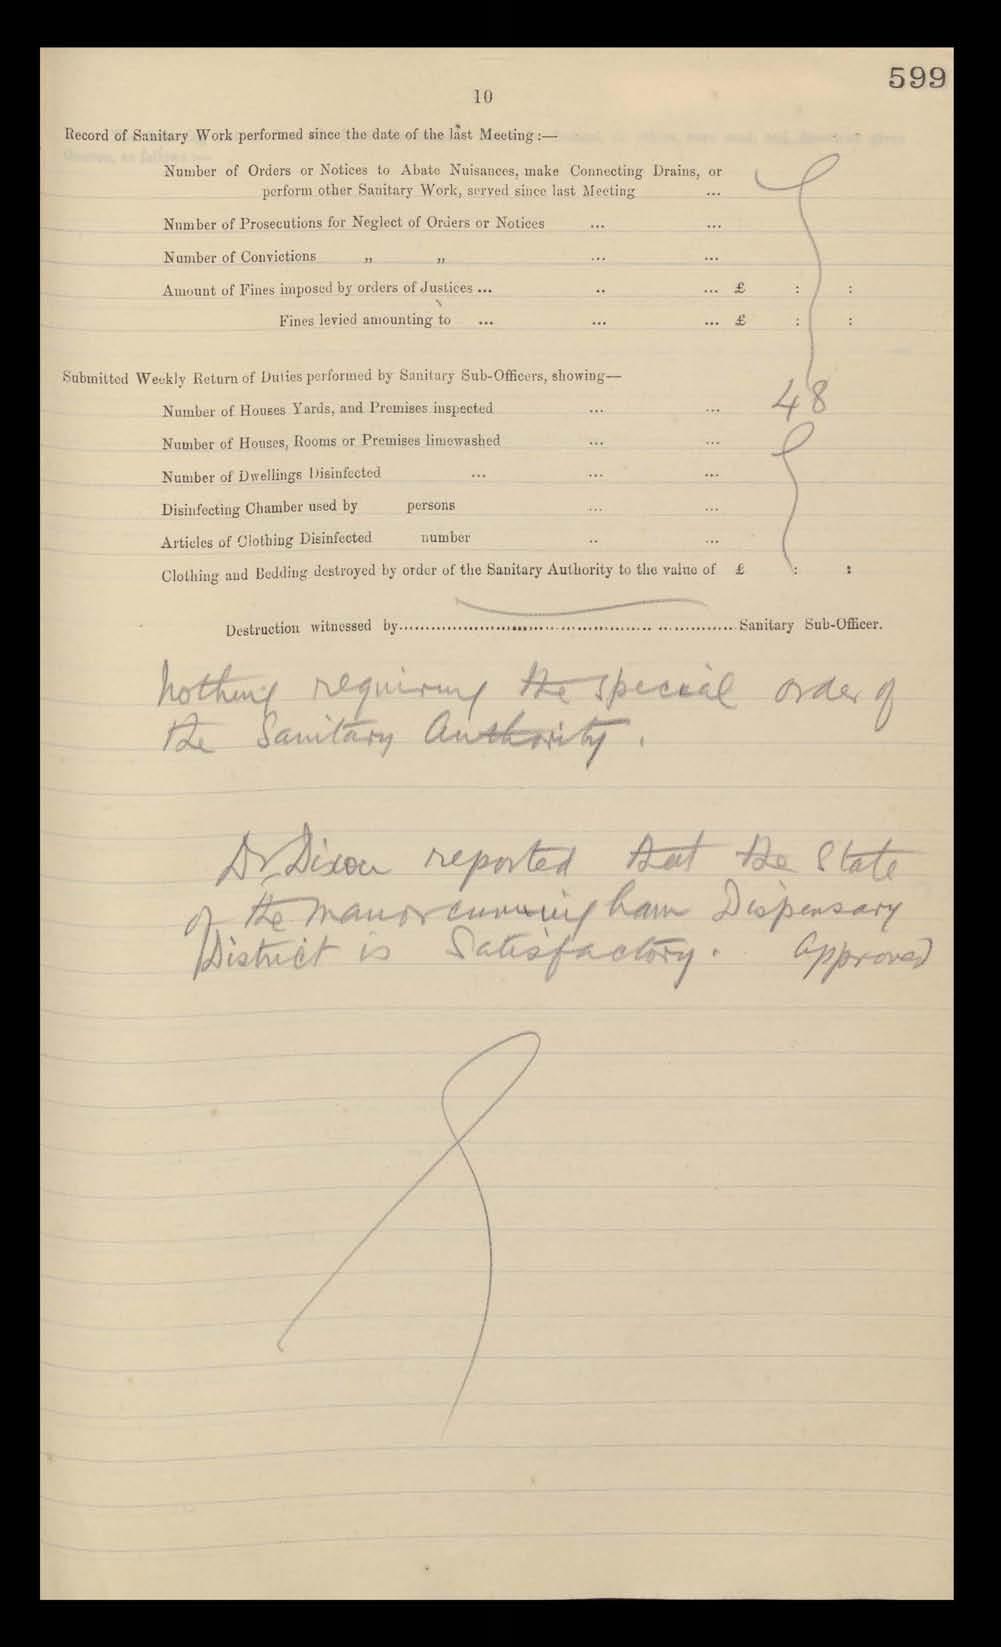 599
10
Record of Sanitary Work performed since the date of the last Meeting :—
Number of Orders or Notices to Abate Nuisances, make Connecting Drains, or
perform other Sanitary Work, served since last Meeting ...
Number of Prosecutions for Neglect of Orders or Notices ... ...
Number of Convictions „ „ ... ...
Amount of Fines imposed by orders of Justices ... .. ... £ : :
Fines levied amounting to ... ... ... £ : :
Submitted Weekly Return of Duties performed by Sanitary Sub-Officers, showing—
Number of Houses Yards, and Premises inspected ... ... 48
Number of Houses, Rooms or Premises limewashed ... ...
Number of Dwellings Disinfected ... ... ...
Disinfecting Chamber used by persons ... ...
Articles of Clothing Disinfected number .. ...
Clothing and Bedding destroyed by order of the Sanitary Authority to the value of £ : :
Destruction witnessed by.................................................................Sanitary Sub-Officer.
Nothing requiring the special order of
the Sanitary Authority .
Dr Dixon reported that the State
of the Manorcunningham Dispensary
District is Satisfactory . Approved